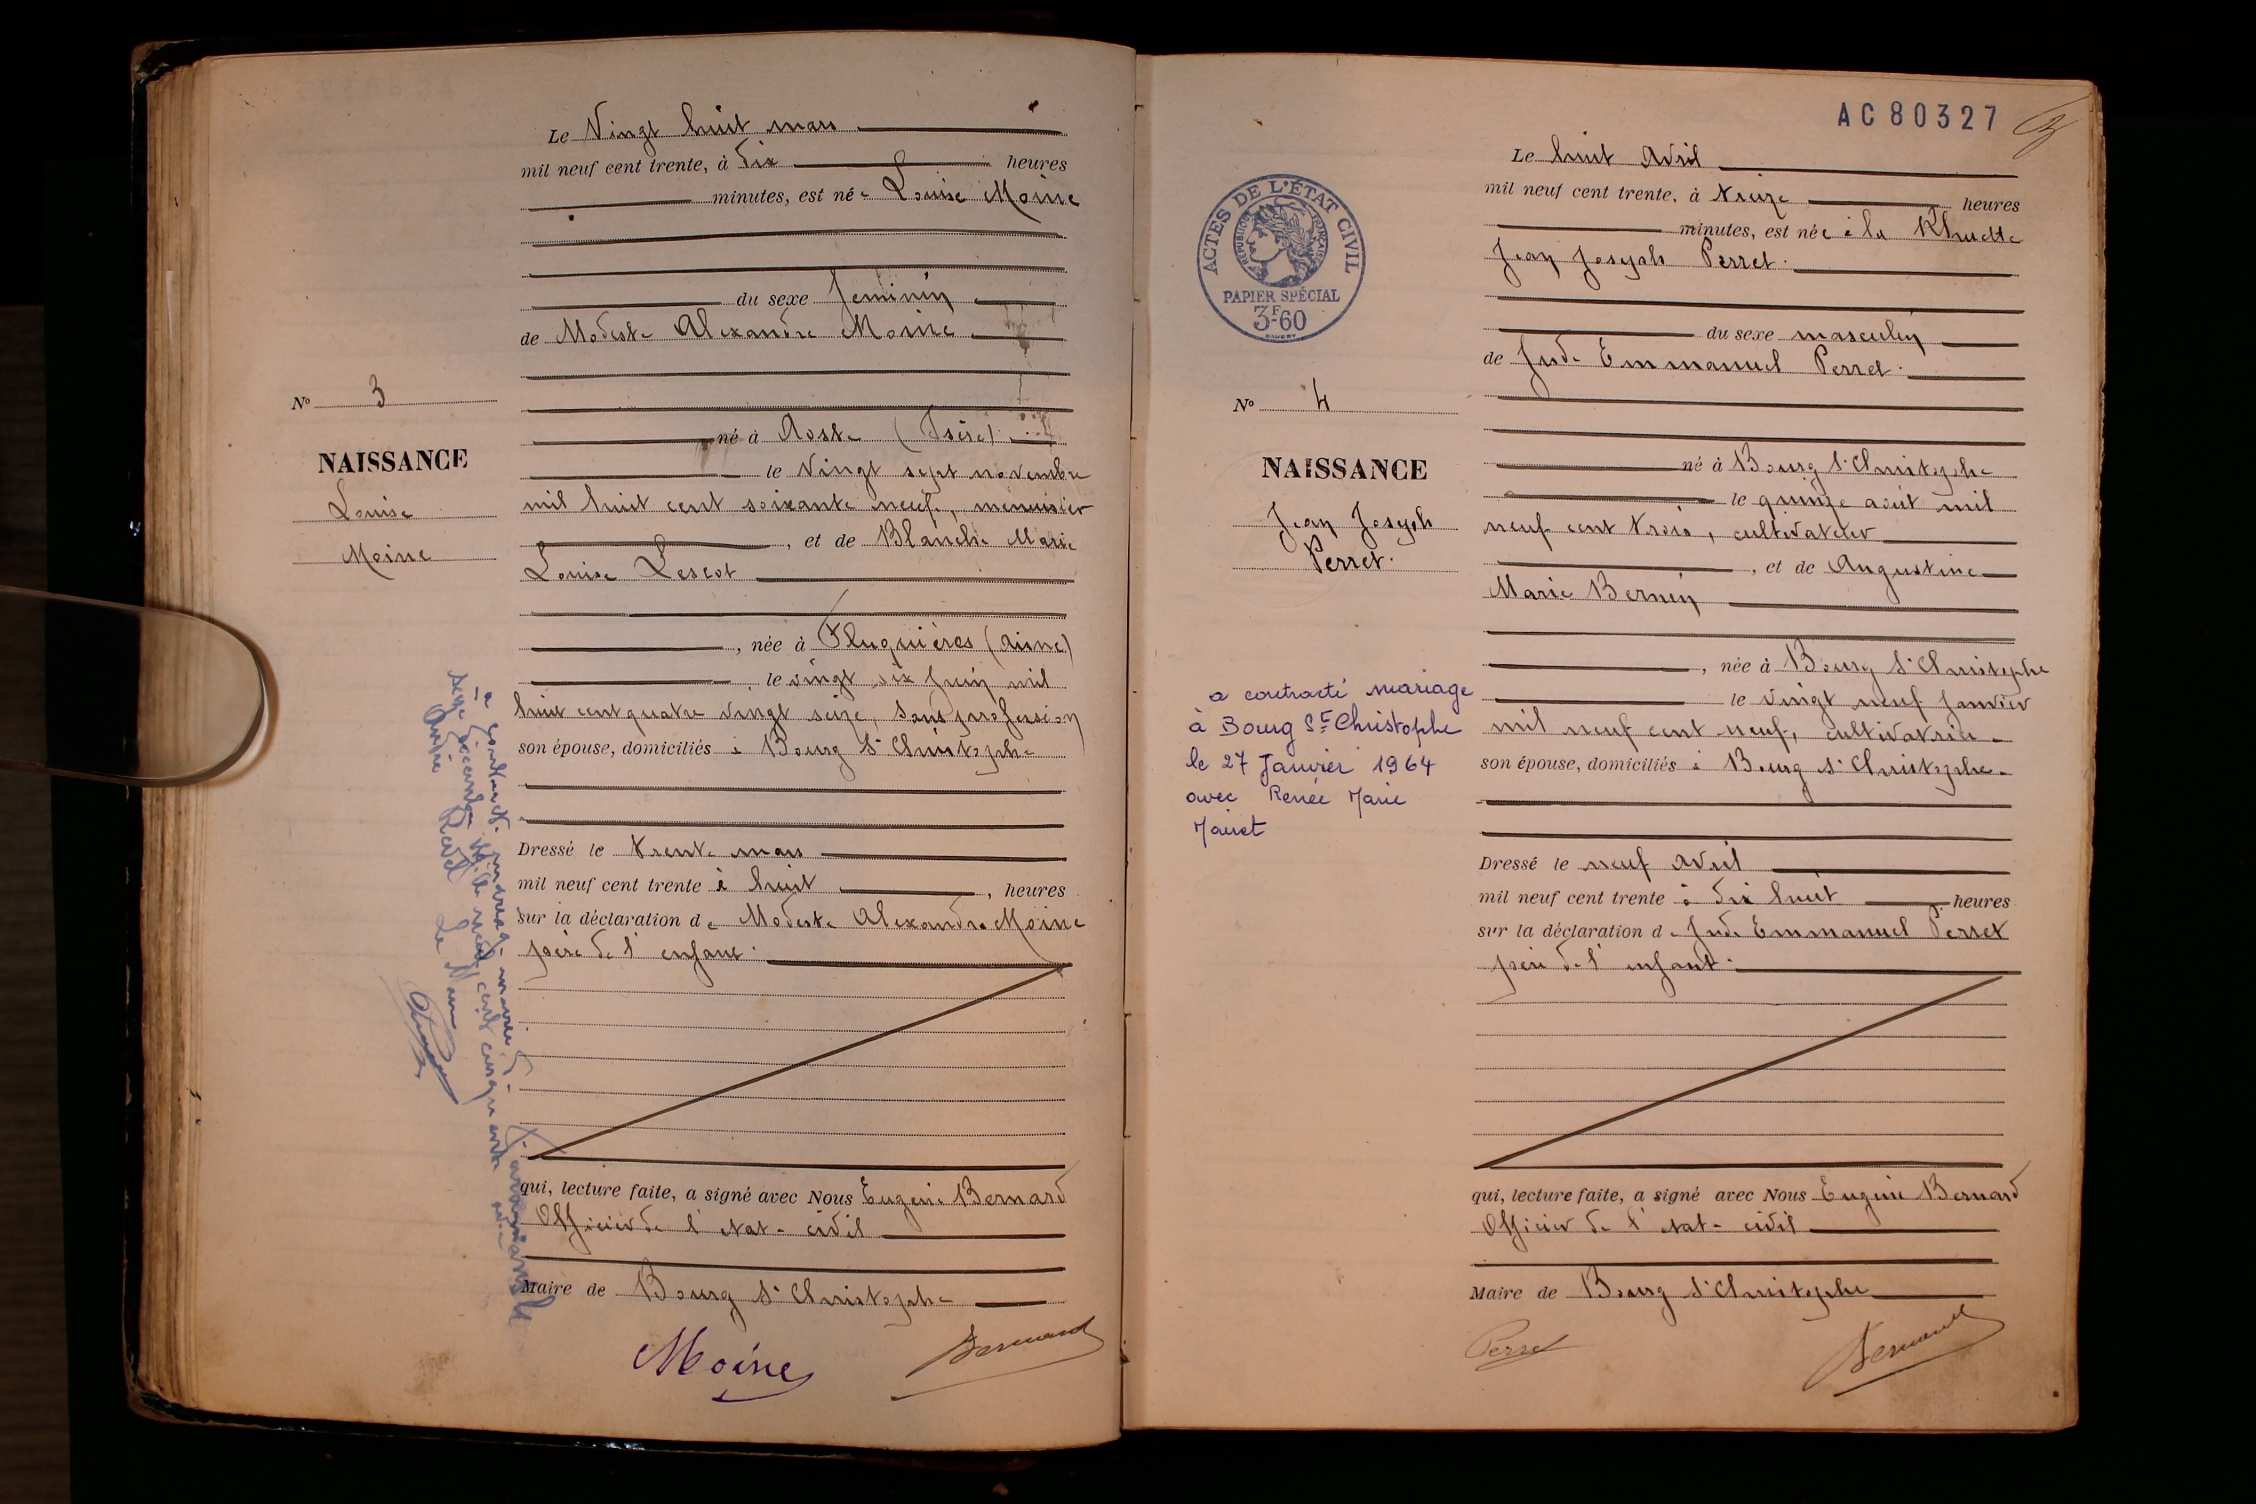 Le Vingt huit mars
mil neuf cent trente, à dix heures
minutes, est née Louise Moine
du sexe feminin
de Modeste Alexandre Moine
N° 3
né à Aoste (Isère)
NAISSANCE
le vingt sept novembre
Louise
mil huit cent soixante neuf, menuisier
Moine
, et de Blanche Marie
Louise Lescot
, née à Fluquières (Aisne)
, le vingt six juin mil
huit cent quatre vingt seize, sans profession
son épouse, domiciliés à Bourg St Christophe
Dressé le trente mars
mil neuf cent trente à huit , heures
sur la déclaration de Modeste Alexandre Moine
père de l'enfant.
qui, lecture faite, a signé avec Nous Eugène Bernard
Officier de l'etat-civil
Maire de Bourg St Christophe
Moine
Bernard
a contracté mariage mairie d'
seize décembre mil neuf cent cinquante
André Revel Le Maire
AC 80327
Le huit Avril
mil neuf cent trente, à treize heures
minutes, est né à la
Jean Joseph Perret.
ACTES DE L'ÉTAT CIVIL
RÉPUBLIQUE FRANÇAISE
PAPIER SPÉCIAL
3F60
du sexe masculin
de Jude Emmanuel Perret.
N° 4
né à Bourg St Christophe
NAISSANCE
le quinze août mil
Jean Joseph
neuf cent trois, cultivateur
Perret.
, et de Augustine
Marie Bernin
, née à Bourg St Christophe
le vingt neuf janvier
mil neuf cent neuf, cultivatrice
son épouse, domiciliés à Bourg St Christophe.
a contracté mariage
à Bourg St Christophe
le 27 Janvier 1964
avec Renée Marie
Mairet
Dressé le neuf avril
mil neuf cent trente à dix huit heures
sur la déclaration de Jude Emmanuel Perret
père de l'enfant.
qui, lecture faite, a signé avec Nous Eugène Bernard
Officier de l'etat-civil
Maire de Bourg St Christophe
Perret
Bernard